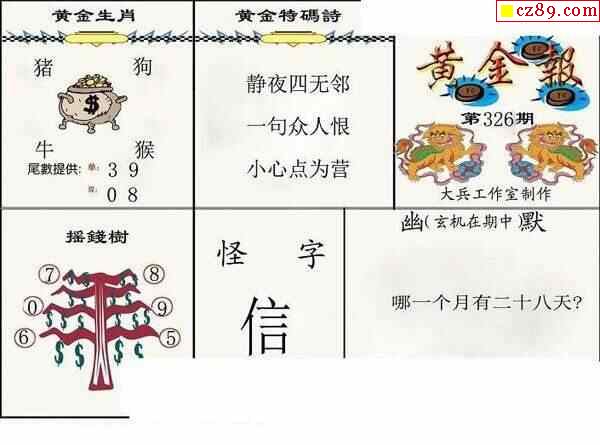 cz89.com
黄金生肖
猪 狗
$
牛 猴
尾數提供: 单: 3 9
双: 0 8
黄金特碼詩
静夜四无邻
一句众人恨
小心点为营
黄金報
第326期
大兵工作室制作
摇錢樹
7 8
0 9
6 5
怪 字
信
幽(玄机在期中)默
哪一个月有二十八天?